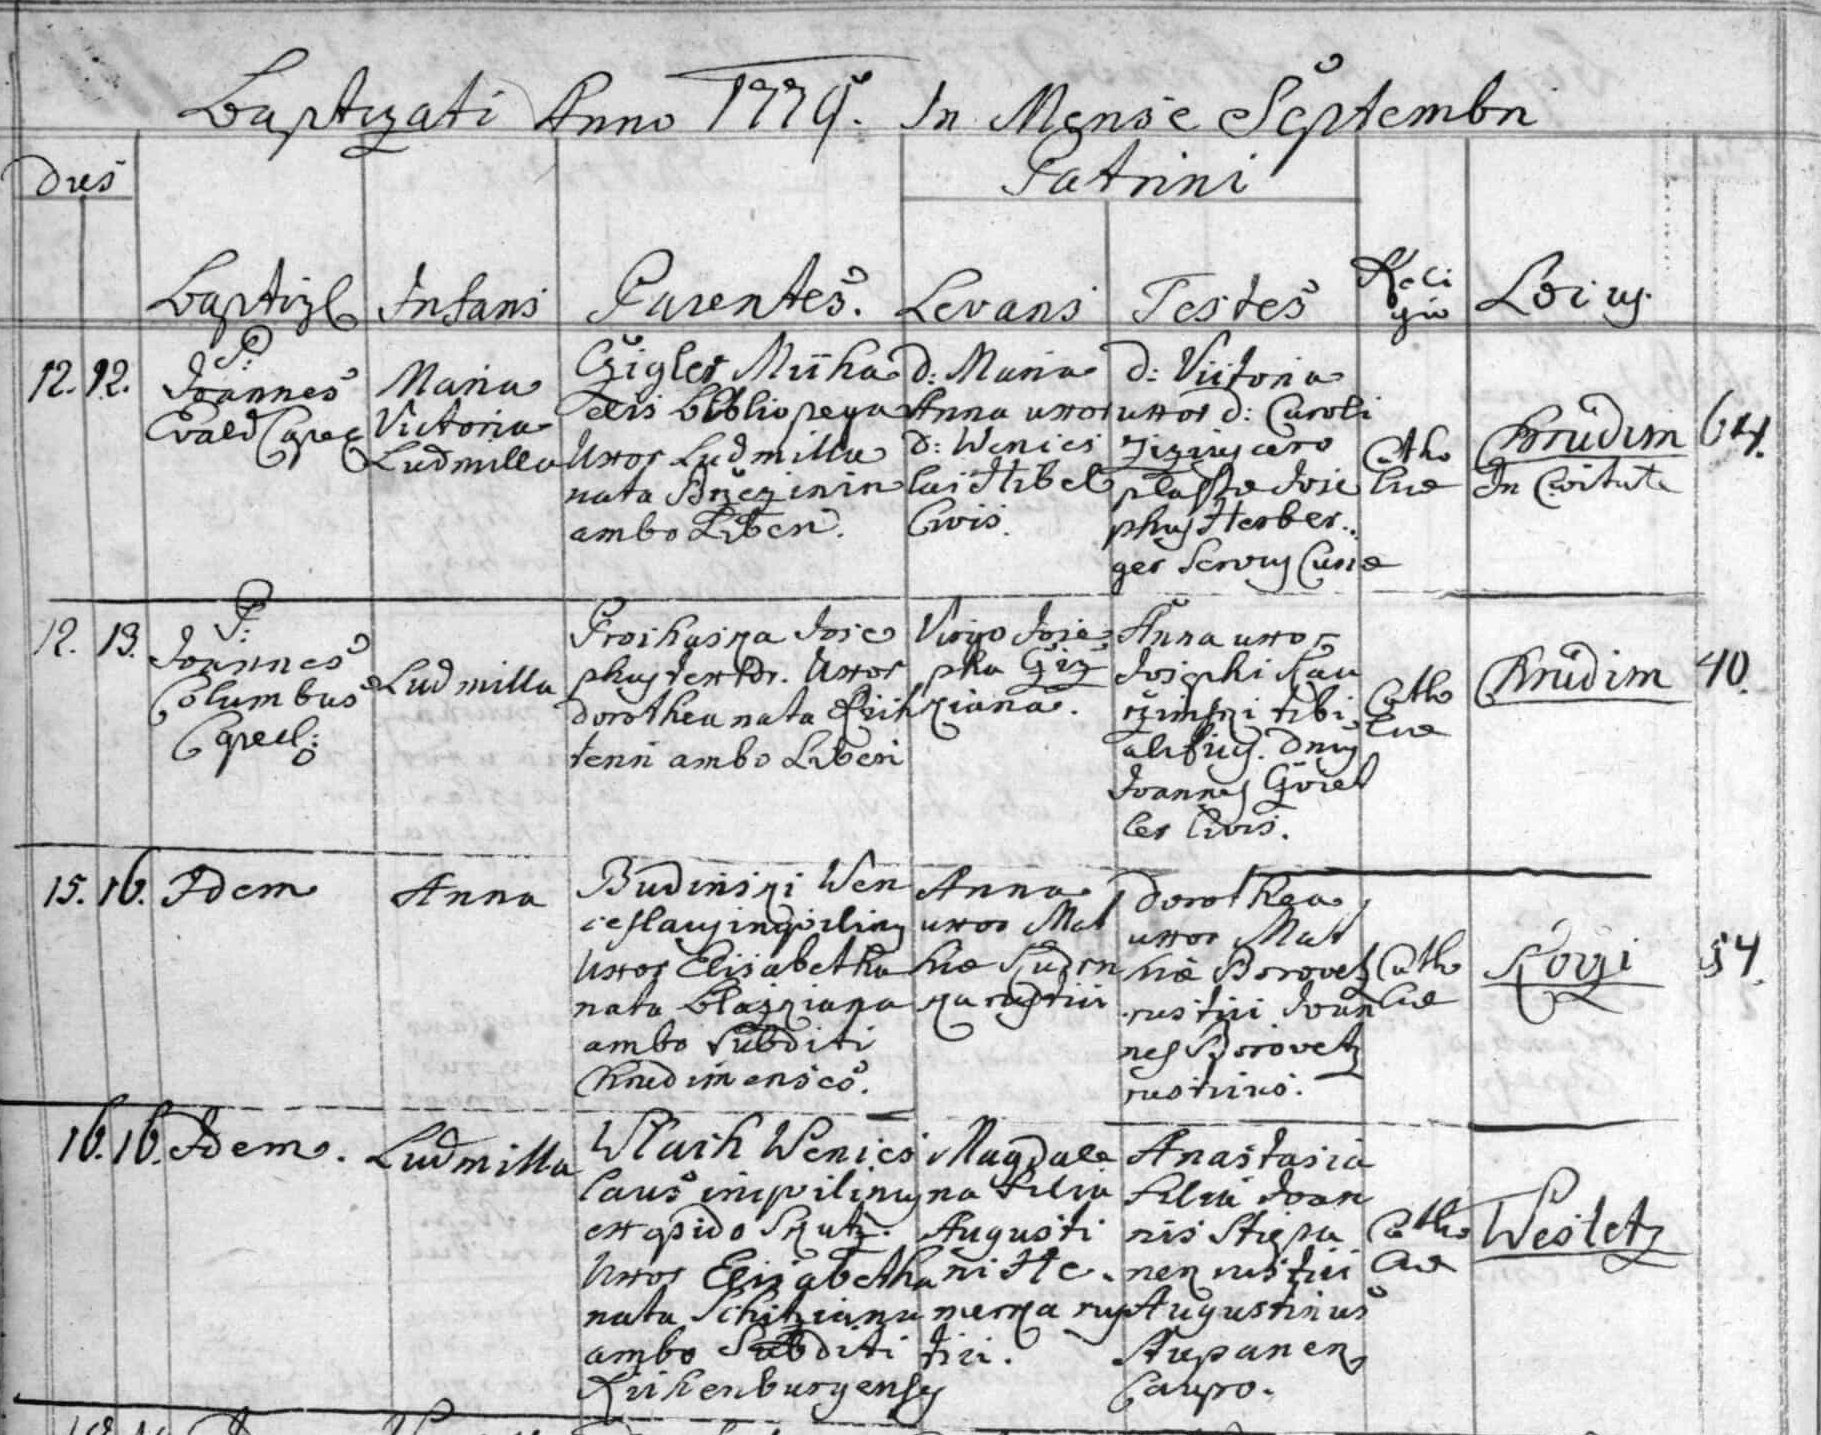 Baptizati Anno 1779. In Mense Septembri
Dies
Patrini
Baptiz. Infans Parentes. Levans Testes Reli
gio Locus
12. 12. P:
Joannes
Evald Capel
Maria
Victoria
Ludmilla
Czigler Micha
elis Bibliopega
Uxor Ludmilla
nata Brzezinin
ambo Liberi.
D: Maria
Anna uxor
D: Wences
lai Hibel
Civis.
D: Victoria
uxor D: Caroli
Josephus Herber
ger Servus Curiae
Catho
licae
Chrudim
In Civitate
64.
12. 13. P:
Joannes
Columbus
Capel:
Ludmilla
Prochaska Jose
phus textor. Uxor
Dorothea nata
ambo Liberi
Virgo Jose
pha
Anna uxor
Josephi
Dnus
Joannes
Civis.
Catho
licae
Chrudim
40.
15. 16. Idem
Anna
Budinski Wen
ceslaus inquilinus
Uxor Elisabetha
nata Blazkiana
ambo Subditi
Chrudimenses.
Anna
uxor Mat
hiae Kudrn
ka rustici
Dorothea
uxor Mat
hiae Borovetz
rustici Joan
nes Borovetz
rusticus.
Catho
licae
Koczi
54.
16. 16. Idem.
Ludmilla
Wlach Wences
laus inquilinus
ex opido Skutz.
Uxor Elisabetha
nata
ambo Subditi
Richenburgenses
Magdale
na filia
Augusti
ni He
merka rus
tici.
Anastasia
filia Joan
nis Stiepa
nek rustici
Augustinus
Stiepanek
Caupo.
Catho
licae
Wesletz